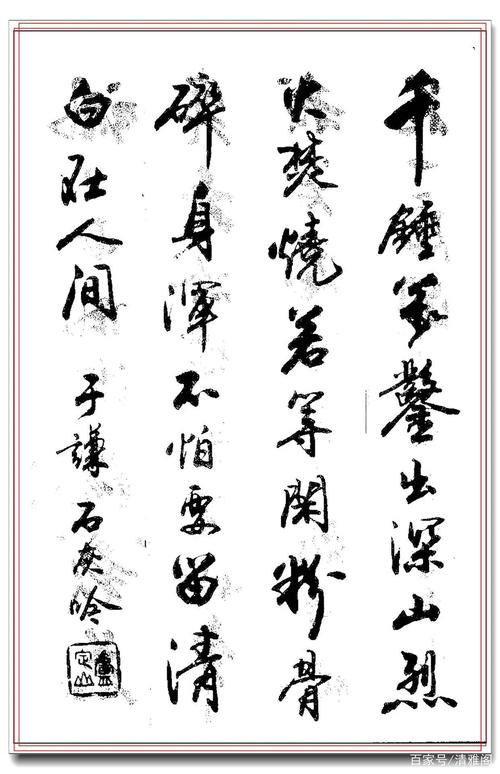 千錘萬鑿出深山烈
火焚燒若等閑粉骨
碎身渾不怕要留清
白在人間 于謙石灰吟
盧定山
百家号/清雅阁